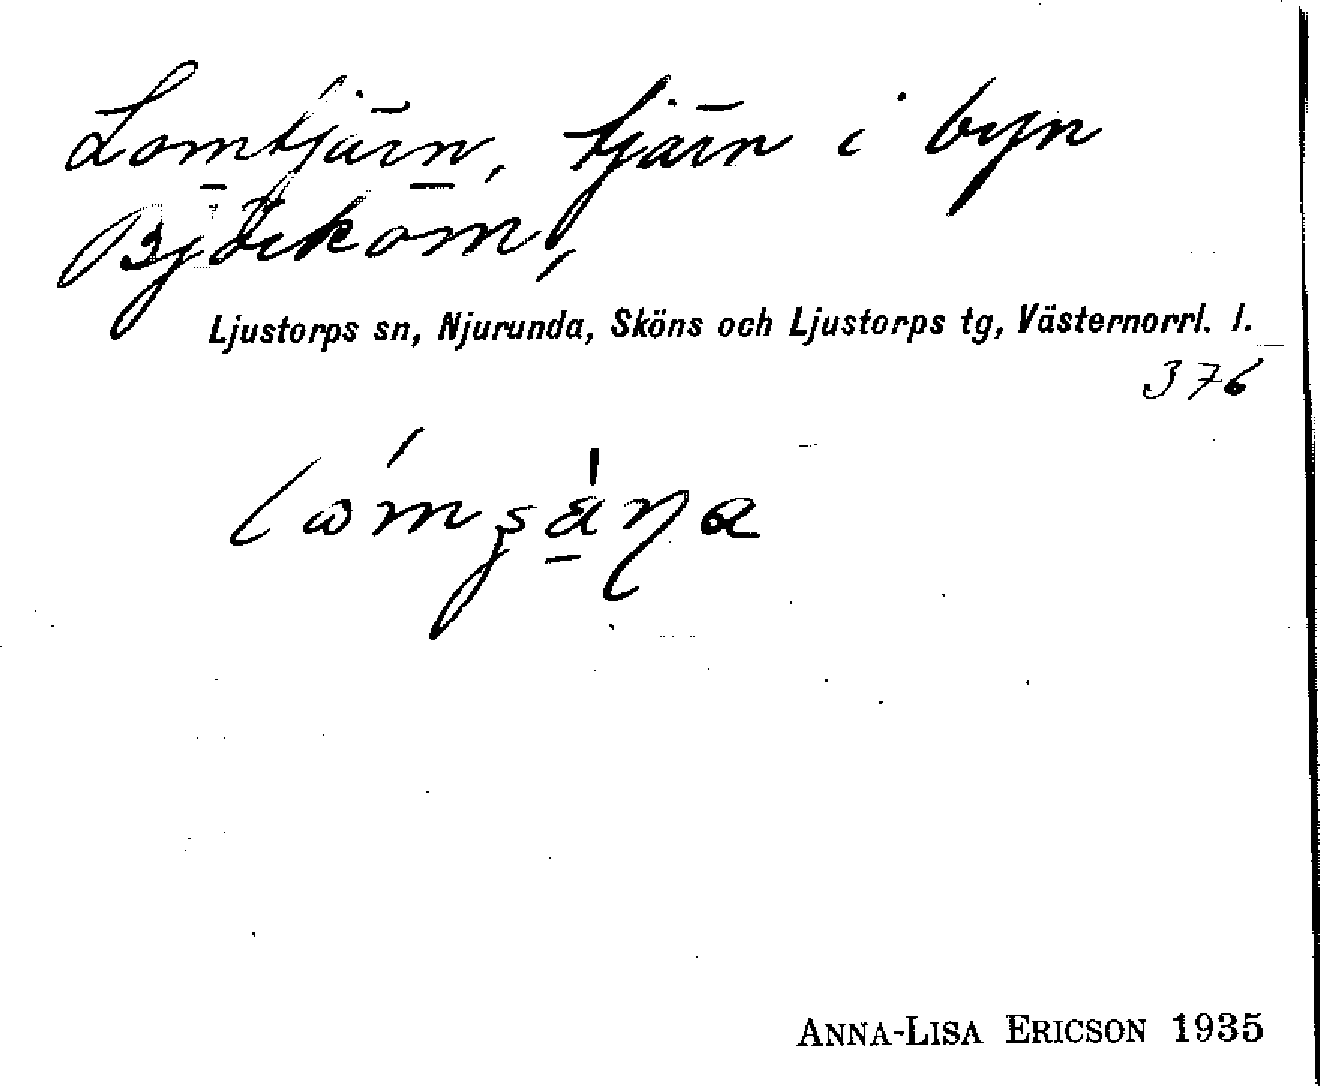 Lomtjärn, tjärn i byn
Björkom,
Ljustorps sn, Njurunda, Sköns och Ljustorps tg, Västernorrl. l.
376
ANNA-LISA ERICSON 1935